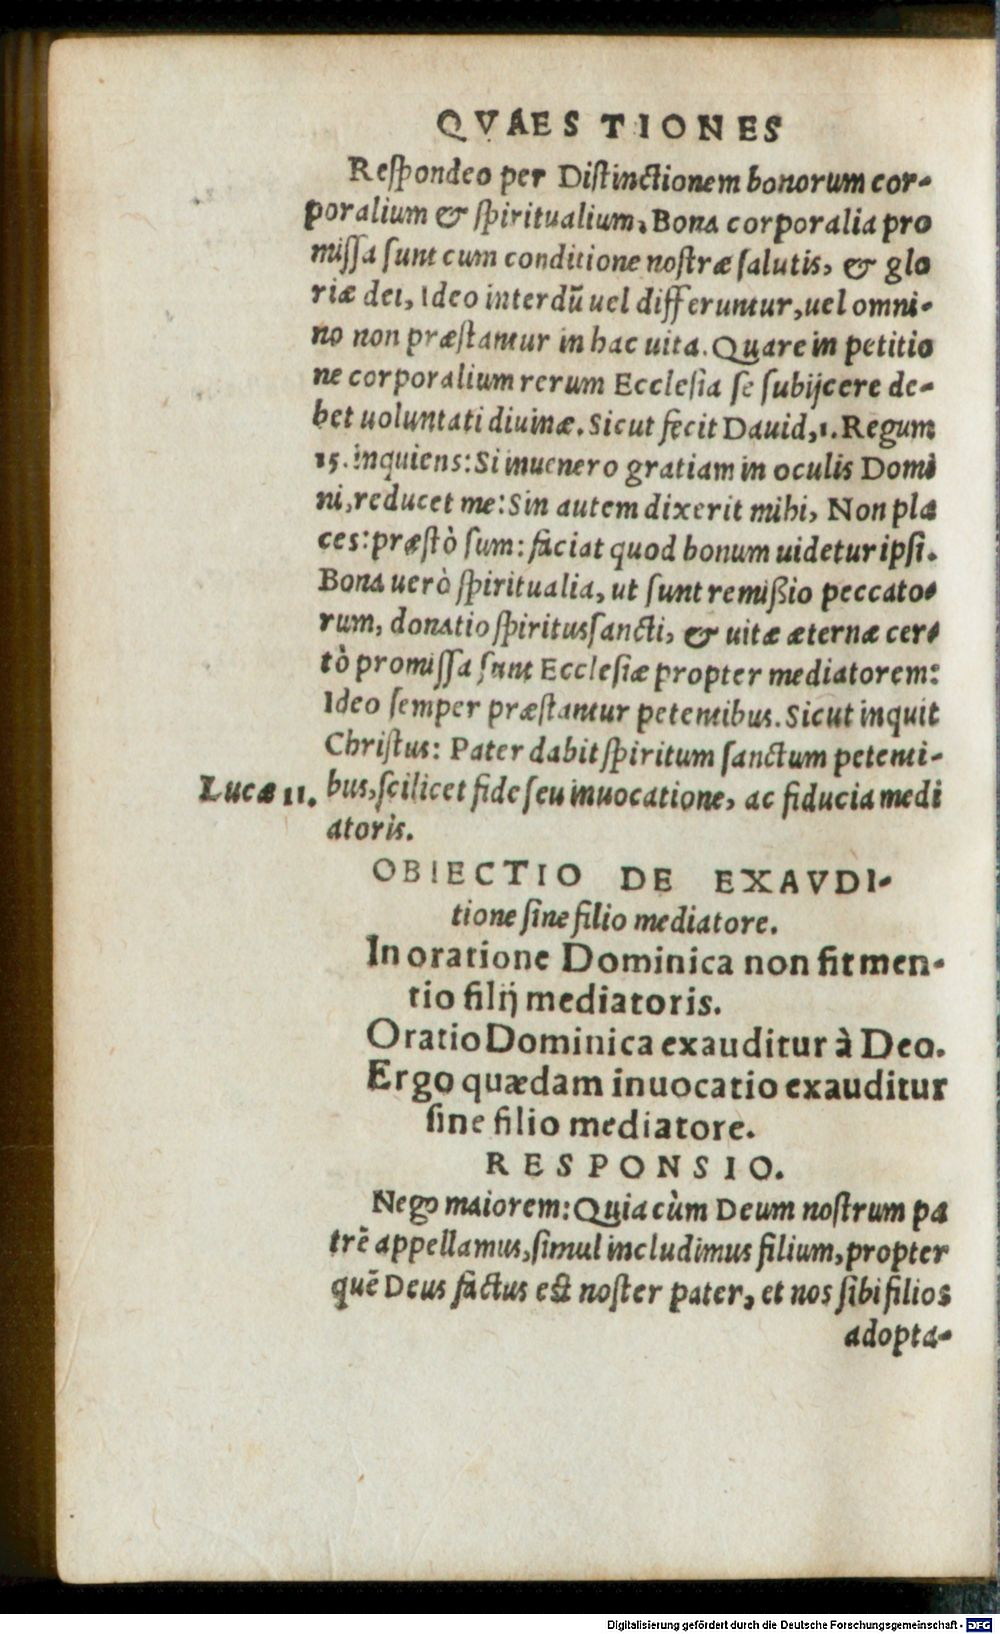 QVAESTIONES
Reſpondeo per Diſtinctionem bonorum cor-
poralium & ſpiritualium, Bona corporalia pro
miſſa ſunt cum conditione noſtræ ſalutis, & glo
riæ dei, Ideo interdū uel differuntur, uel omni-
no non præſtantur in hac uita. Quare in petitio
ne corporalium rerum Eccleſia ſe ſubijcere de-
bet uoluntati diuinæ. Sicut fecit Dauid, 1. Regum
15. inquiens: Si inuenero gratiam in oculis Domi
ni, reducet me: Sin autem dixerit mihi, Non pla
ces: præſtò ſum: faciat quod bonum uidetur ipſi.
Bona uerò ſpiritualia, ut ſunt remißio peccato-
rum, donatio ſpiritusſancti, & uitæ æternæ cer-
tò promiſſa ſunt Eccleſiæ propter mediatorem:
Ideo ſemper præſtantur petentibus. Sicut inquit
Chriſtus: Pater dabit ſpiritum ſanctum petenti-
Lucæ 11. bus, ſcilicet fide ſeu inuocatione, ac fiducia medi
atoris.
OBIECTIO DE EXAVDI-
tione ſine filio mediatore.
In oratione Dominica non fit men-
tio filij mediatoris.
Oratio Dominica exauditur à Deo.
Ergo quædam inuocatio exauditur
ſine filio mediatore.
RESPONSIO.
Nego maiorem: Quia cùm Deum noſtrum pa
trē appellamus, ſimul includimus filium, propter
quē Deus factus eſt noſter pater, et nos ſibi filios
adopta-
Digitalisierung gefördert durch die Deutsche Forschungsgemeinschaft - DFG